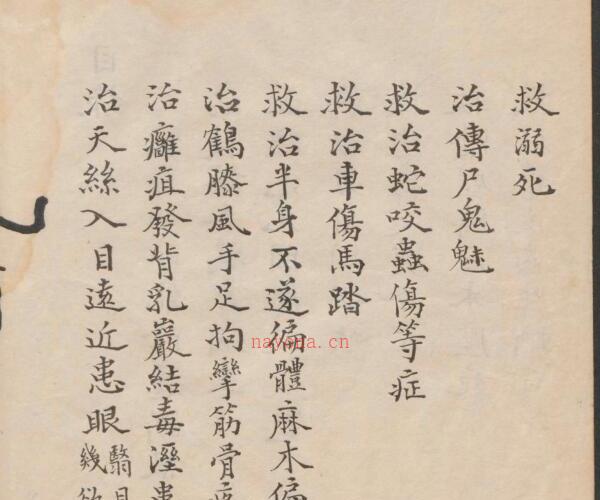 救溺死
治傳尸鬼魅
救治蛇咬蟲傷等症
救治車傷馬踏
救治半身不遂徧體麻木偏
治鶴膝風手足拘攣筋骨疼
治癰疽發背乳巖結毒溼患
治天絲入目遠近患眼
nayona.cn